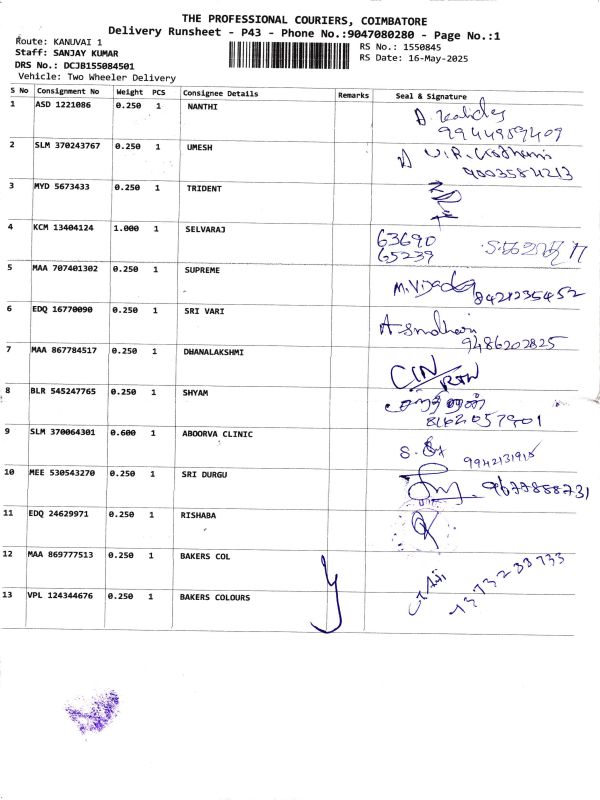 THE PROFESSIONAL COURIERS, COIMBATORE
Delivery Runsheet - P43 - Phone No.:9047080280 - Page No.:1
Route: KANUVAI 1
RS No.: 1550845
Staff: SANJAY KUMAR
RS Date: 16-May-2025
DRS No.: DCJB155084501
Vehicle: Two Wheeler Delivery
S No Consignment No Weight PCS Consignee Details Remarks Seal & Signature
1 ASD 1221086 0.250 1 NANTHI
9944989409
2 SLM 370243767 0.250 1 UMESH
9003584213
3 MYD 5673433 0.250 1 TRIDENT
4 KCM 13404124 1.000 1 SELVARAJ 63690
65239
5 MAA 707401302 0.250 1 SUPREME
M.Vijaya 8421235452
6 EDQ 16770090 0.250 1 SRI VARI
9486202825
7 MAA 867784517 0.250 1 DHANALAKSHMI
CIN/RTN
8 BLR 545247765 0.250 1 SHYAM
8162057901
9 SLM 370064301 0.600 1 ABOORVA CLINIC
10 MEE 530543270 0.250 1 SRI DURGU
9677858731
11 EDQ 24629971 0.250 1 RISHABA
12 MAA 869777513 0.250 1 BAKERS COL
13 VPL 124344676 0.250 1 BAKERS COLOURS